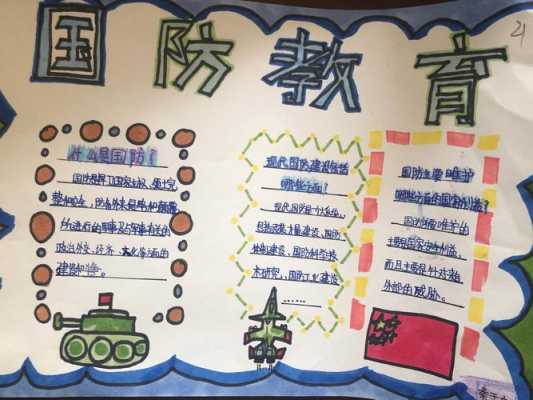 国防教育
21
什么是国防？
国防是为了国家主权、领土完
整和安全，防备外来侵略和颠覆
所进行的军事及与军事有关的
政治外交、经济、文化等方面的
建设和斗争。
现代国防建设包括
哪些方面？
现代国防是个大系统，
包括武装力量建设、国防
体制建设、国防科学技
术研究，国防工业建设
……
国防主要维护
哪些方面的国家利益？
国防所维护的
主要是国家安全利益，
而且主要是针对来自
外部的威胁。